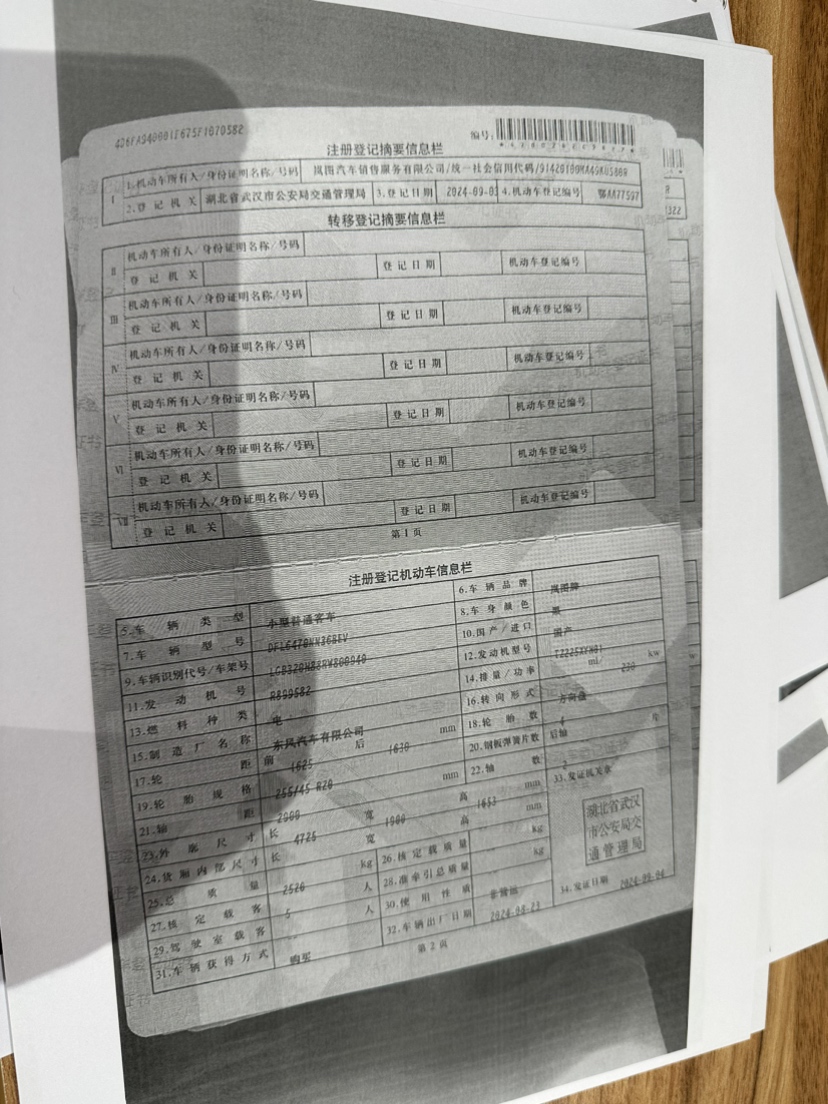 编号:
注册登记摘要信息栏
I 1.机动车所有人/身份证明名称/号码 岚图汽车销售服务有限公司/统一社会信用代码/
2.登记机关 湖北省武汉市公安局交通管理局 3.登记日期 4.机动车登记编号 鄂AA77597
转移登记摘要信息栏
II 机动车所有人/身份证明名称/号码
登记机关 登记日期 机动车登记编号
III 机动车所有人/身份证明名称/号码
登记机关 登记日期 机动车登记编号
IV 机动车所有人/身份证明名称/号码
登记机关 登记日期 机动车登记编号
V 机动车所有人/身份证明名称/号码
登记机关 登记日期 机动车登记编号
VI 机动车所有人/身份证明名称/号码
登记机关 登记日期 机动车登记编号
VII 机动车所有人/身份证明名称/号码
登记机关 登记日期 机动车登记编号
第1页
注册登记机动车信息栏
5.车辆类型 小型普通客车 6.车辆品牌 岚图牌
7.车辆型号 8.车身颜色 黑
9.车辆识别代号/车架号 10.国产/进口 国产
11.发动机号 R899582 12.发动机型号
13.燃料种类 电 14.排量/功率 ml/ 230 kw
15.制造厂名称 东风汽车有限公司 16.转向形式 方向盘
17.轮距 前 1625 后 1630 mm 18.轮胎数 4
19.轮胎规格 255/45 R20 20.钢板弹簧片数 后轴 片
21.轴距 2900 mm 22.轴数 2
23.外廓尺寸 长 4725 宽 1900 高 1653 mm 33.发证机关章
24.货厢内部尺寸 长 宽 高 mm
湖北省武汉
市公安局交
通管理局
25.总质量 2526 kg 26.核定载质量 kg
27.核定载客 5 人 28.准牵引总质量 kg
29.驾驶室载客 人 30.使用性质 非营运
31.车辆获得方式 购买 32.车辆出厂日期 2024-08-23 34.发证日期 2024-09-04
第2页